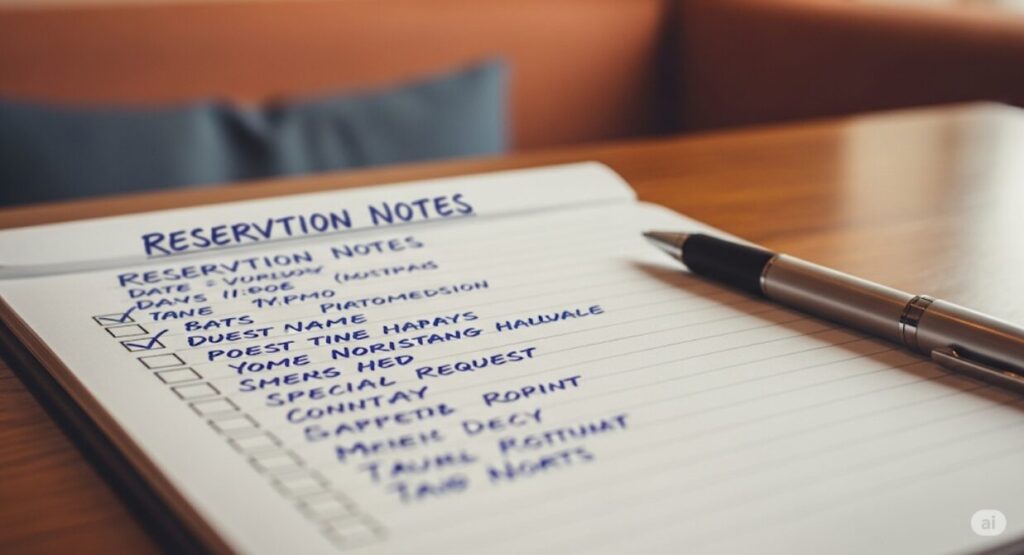 RESERVTION NOTES
RESERVTION NOTES
DATE =
DAYS 11:DOE
TANE TY.PMO PIATOMEDSION
BATS
DUEST NAME
POEST TINE HAPAYS
YOME NORISTANG HALLVALE
SMENS HED
SPECIAL REQUEST
CONNTAY
GAPPETE ROPINT
MEIEH DECY
TAUHL ROTTUMT
TAID NOATS
ai